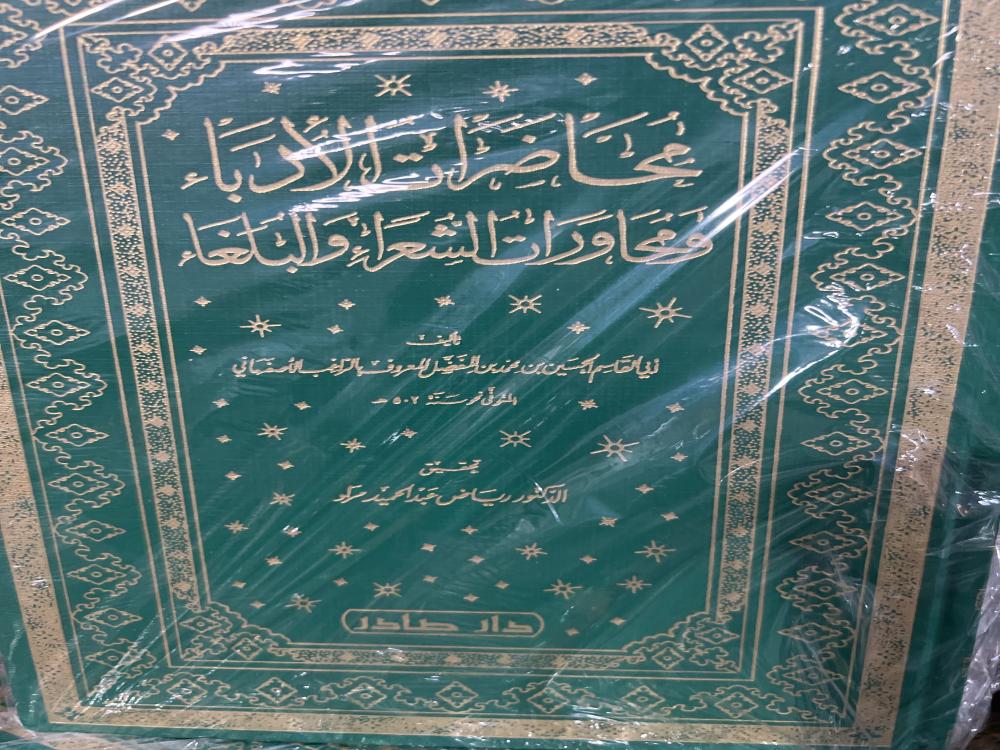 محَاضَرَات الأُدَبَاء
وَمحَاوَرَات الشُّعَرَاءِ وَالبُلَغَاء
تأليف
أبي القاسم الحسين بن محمد بن المفضّل المعروف بالرّاغب الأصفهاني
المتوفى نحو سنة ٥٠٢ هـ
تحقيق
الدكتور رياض عبد الحميد مراد
دار صادر